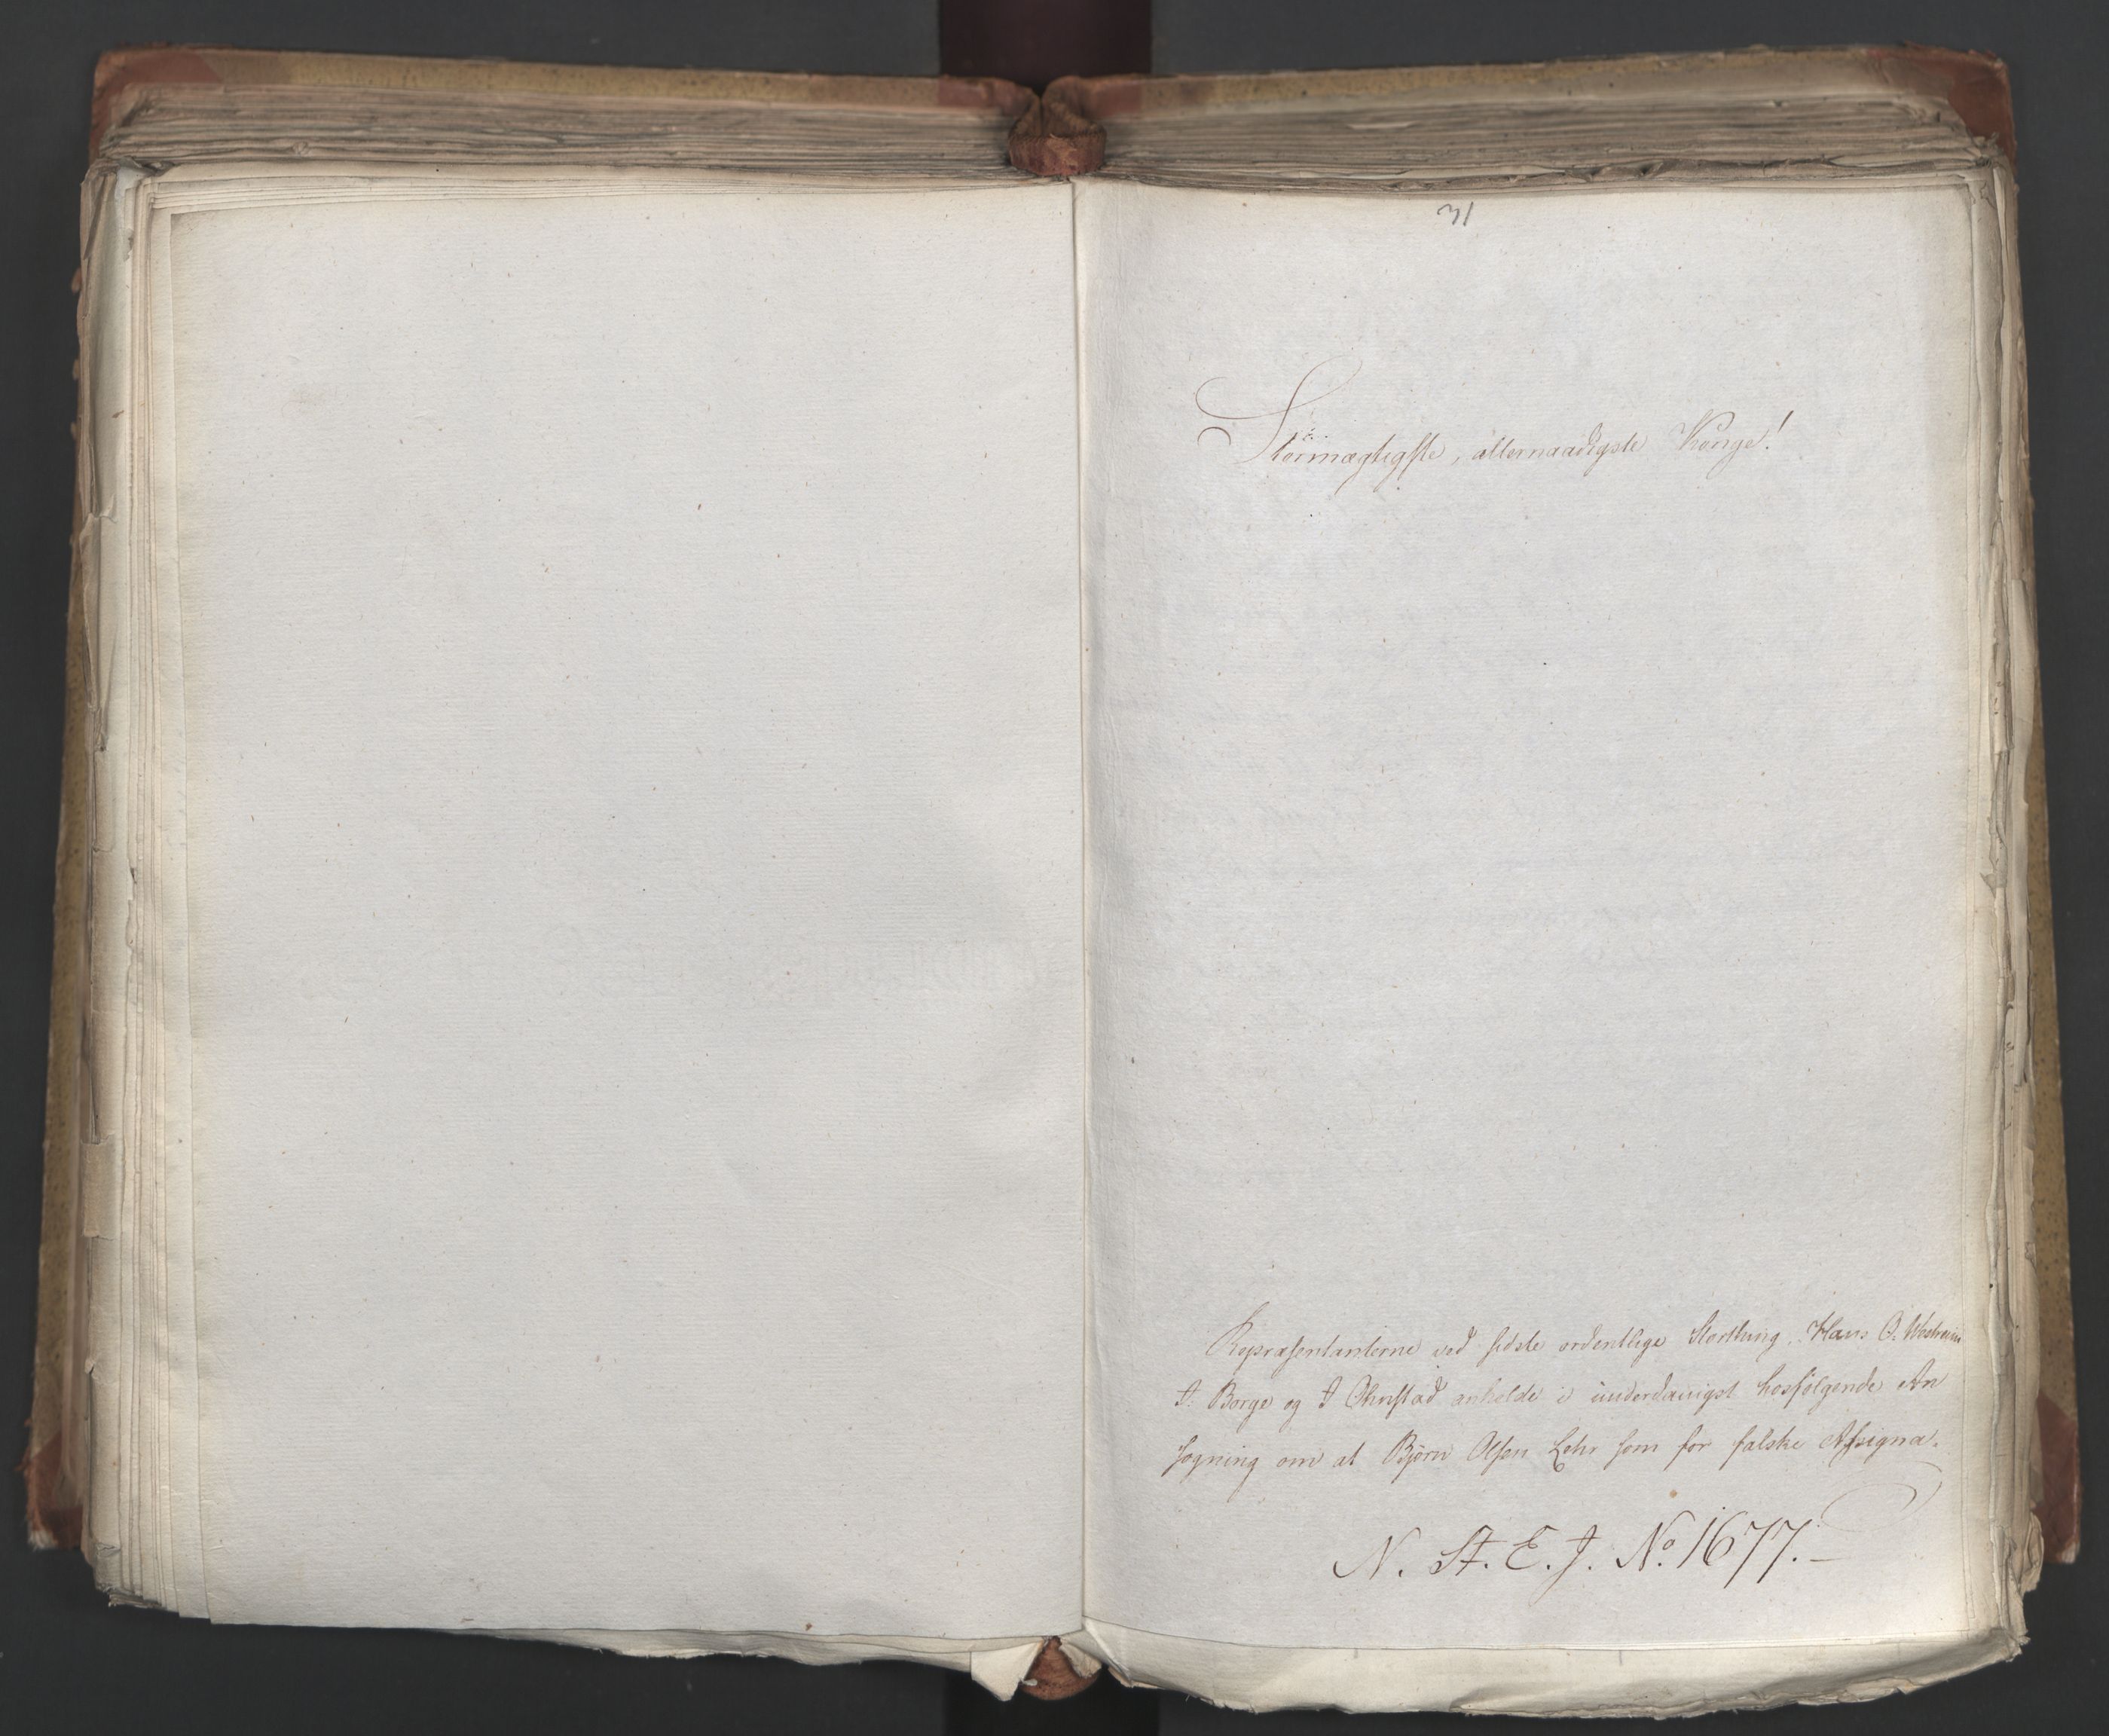 31
Stormægtigste, allernaadigste Konge!
Repræsentanterne ved sidste ordentlige Storthing. Hans O. Westreim
A. Borge og I Ohnstad anholde i underdanigst hosfølgende An
søgning om at Bjørn Olsen Lehr som for falske Assigna-
N. St. E. J. No 1677.-